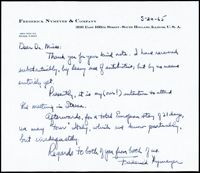 FREDERICK NYMEYER & COMPANY
SOUTH HOLLAND, ILLINOIS, U.S.A.
5-20-65
Dear Dr. Mises:
Thank you for your kind note. I have recovered
substantially, by heavy use of antibiotics, but by no means
entirely yet.
Presently, it is my (our) intention to attend
the meeting in Stresa.
Afterwards, for a total European stay of 21 days,
we may tour Italy, which we know particularly,
but inadequately.
Regards to both of you from both of us.
Frederick Nymeyer